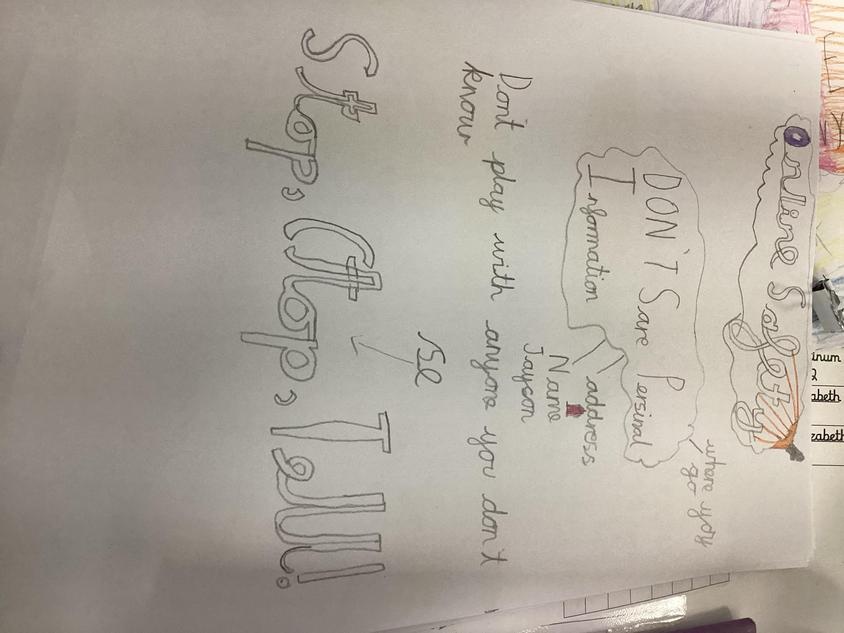 Online Safety
where yoy
go
DON'T Sare Persinal
Information
address
Name
Jayson
Don't play with anyone you don't
know
Stop, Ctop, Tell!
inum
2
abeth
zabeth